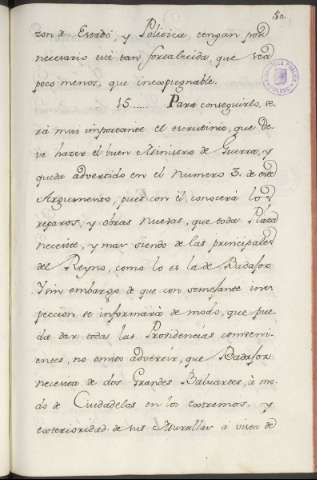 50.
zon de Estado, y Politica, tengan por
necesario esté tan fortalecida, que sea
poco menos, que inexpugnable.
15...... Para conseguirlo, se
rá mas importante el escrutinio, que de-
ve hacer el buen Ministro de Guerra, y
queda advertido en el Numero 3. de este
Argumento, pues con él, conocerá los
reparos, y obras nuevas, que toda Plaza
necesite, y mas siendo de las principales
del Reyno, como lo es la de Badajoz
Y sin embargo de que con semejante ins-
peccion se informará de modo, que pue-
da dar todas las Providencias combeni-
entes, no omito advertir, que Badajoz
necesita de dos Grandes Baluartes, à mo-
do de Ciudadelas en los extremos, y
exterioridad de sus Murallas à vista de